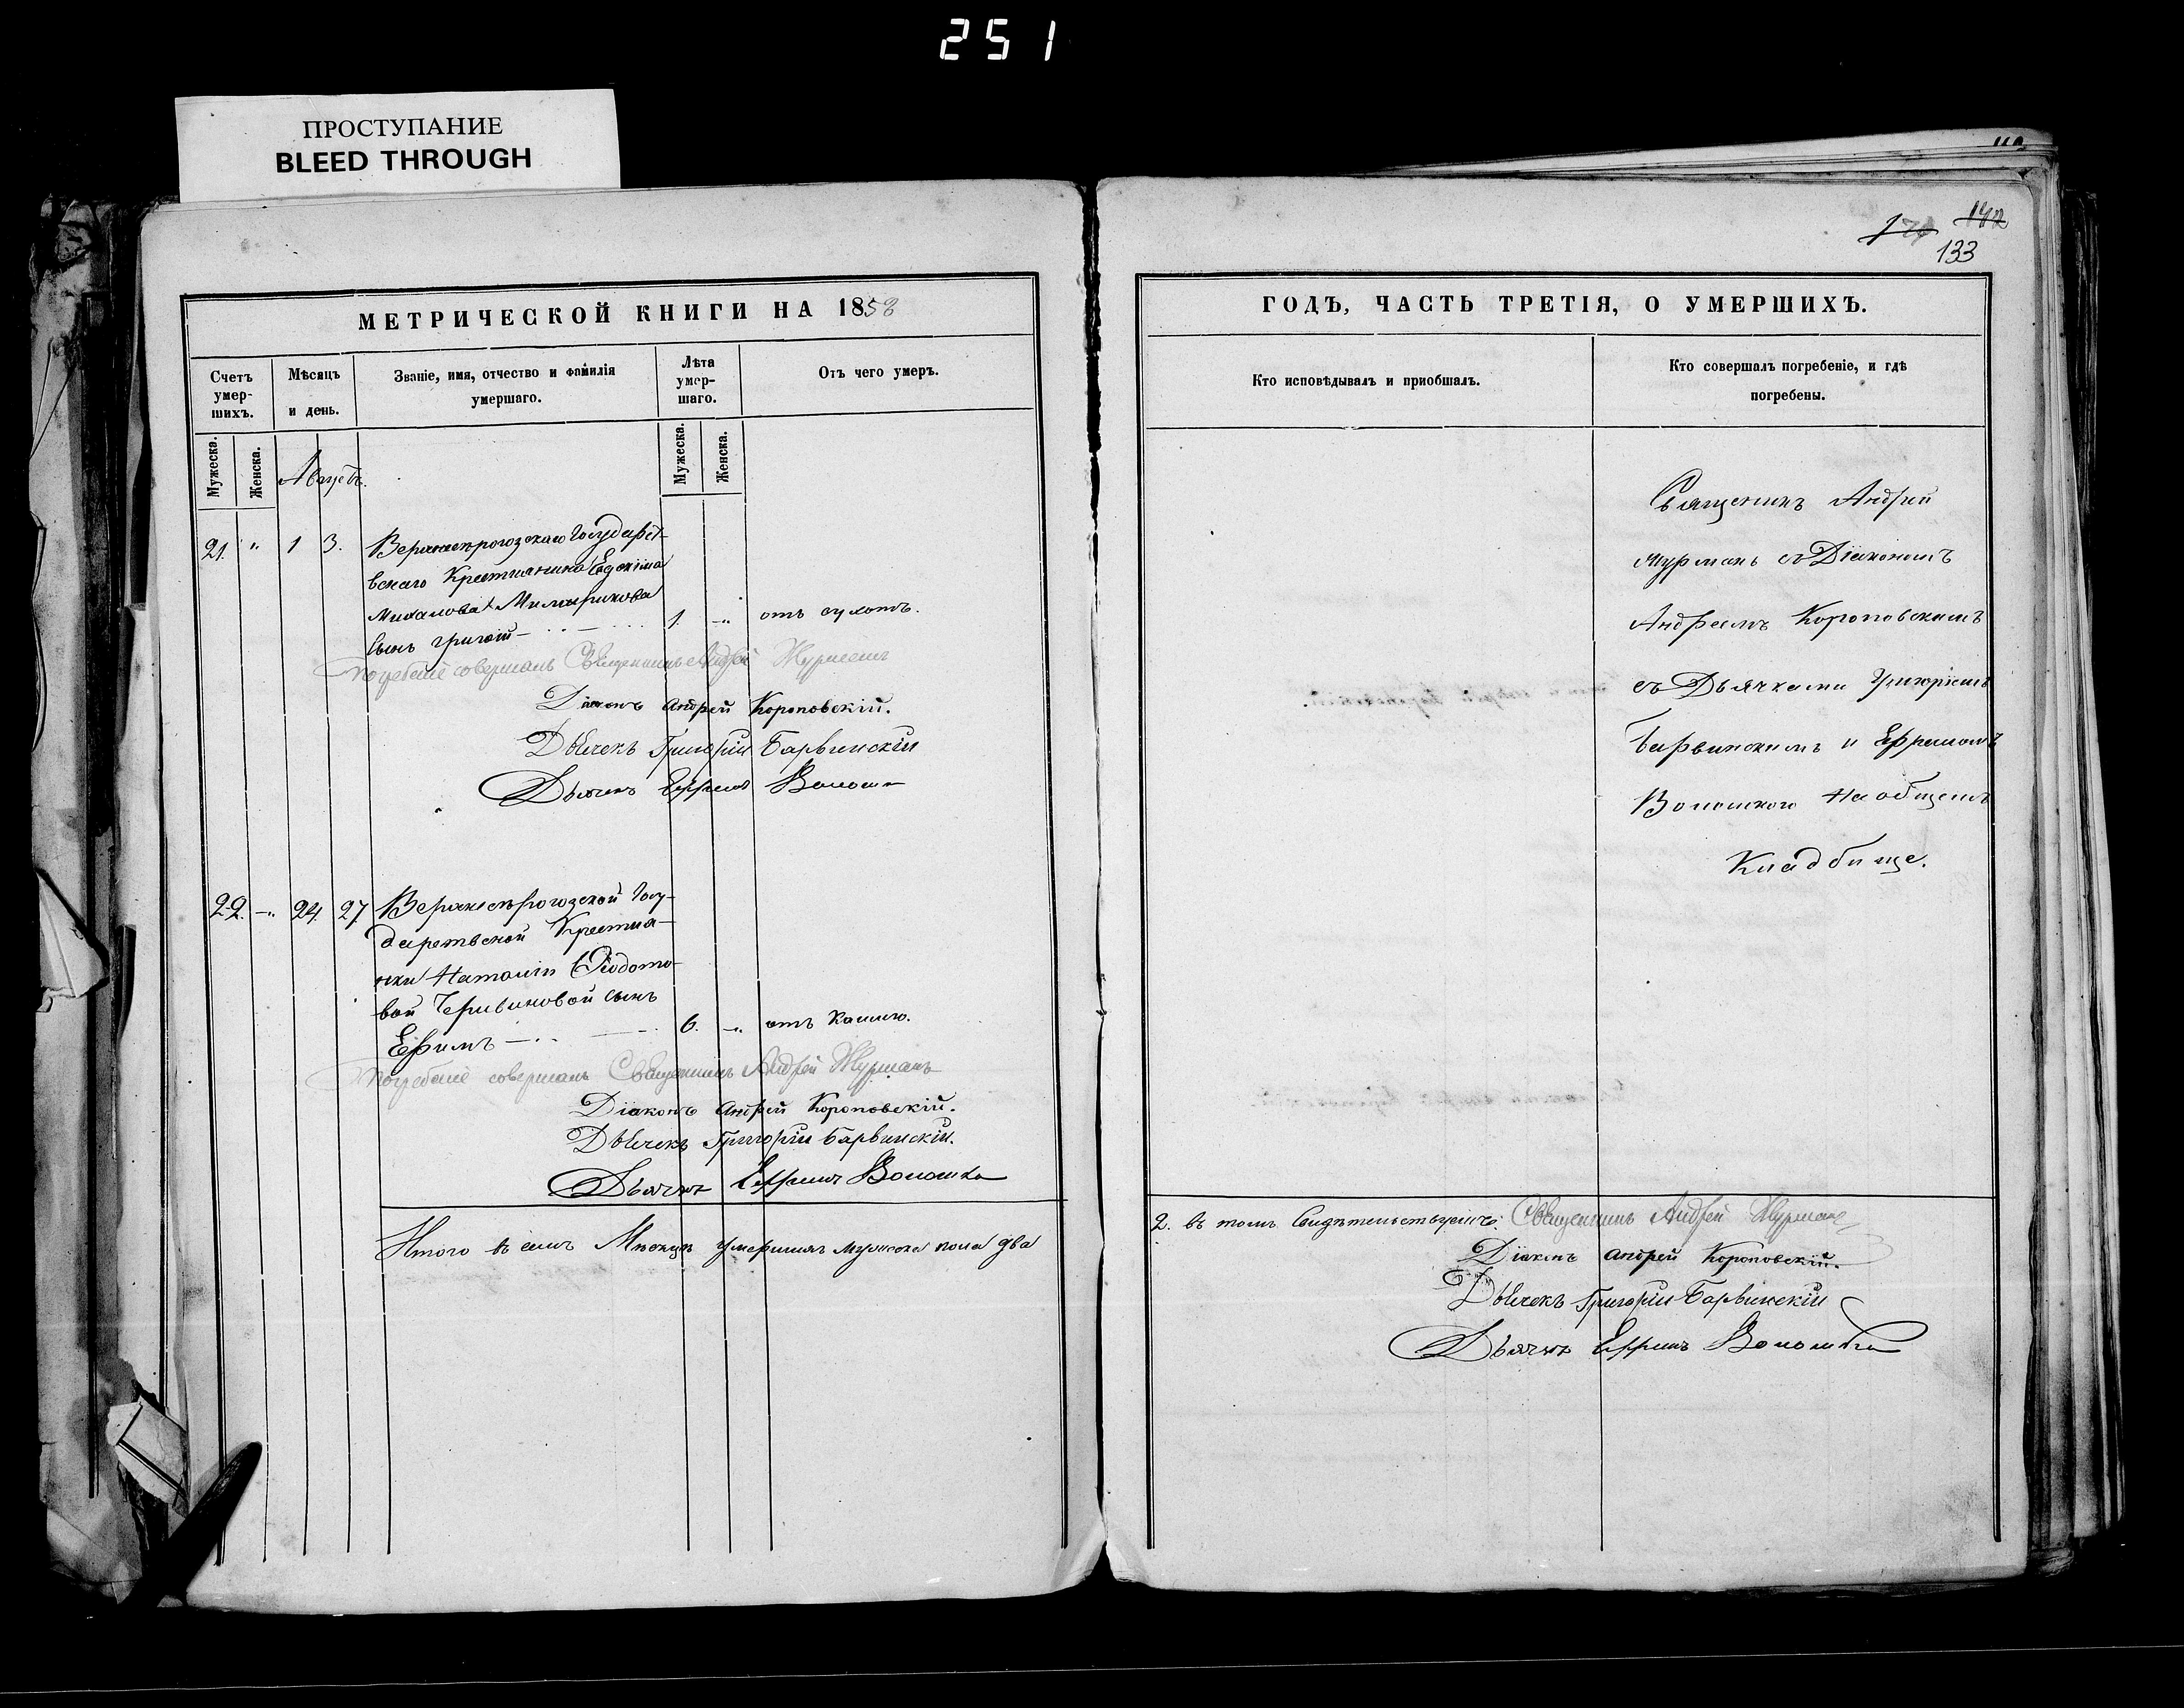 251
ПРОСТУПАНИЕ
BLEED THROUGH
133
МЕТРИЧЕСКОЙ КНИГИ НА 1858
Счетъ умер-шихъ.
Мѣсяцъ и день.
Званіе, имя, отчество и фамилія умершаго.
Лѣта умер-шаго.
Отъ чего умеръ.
Мужеска.
Женска.
Мужеска.
Женска.
21. " 1 3.
Крестьянина
сынъ 1. " отъ сухотъ.
Погребеніе совершалъ Священникъ Андрей Журманъ
Діаконъ Андрей Короповскій.
Дьячекъ Григорій Барвинскій
Дьячекъ Ефремъ
22. " 24. 27
Госу-
дарственной Крестья-
нки Наталіи Ѳедото-
вой сынъ
Ефимъ 6. " отъ кашлю.
Погребеніе совершалъ Священникъ Андрей Журманъ
Діаконъ Андрей Короповскій.
Дьячекъ Григорій Барвинскій.
Дьячекъ Ефремъ Волошко
Итого въ семъ Мѣсяцѣ умершихъ мужеска пола два
ГОДЪ, ЧАСТЬ ТРЕТІЯ, О УМЕРШИХЪ.
Кто исповѣдывалъ и пріобщалъ.
Кто совершалъ погребеніе, и гдѣ погребены.
Священикъ Андрей
Журманъ съ Діакономъ
Андреемъ Короповскимъ
съ Дьячками Григоріемъ
Барвинскимъ и Ефремомъ
На общемъ
Кладбище.
2. въ томъ Свидѣтельствуемъ: Священникъ Андрей Журманъ
Діаконъ Андрей Короповскій.
Дьячекъ Григорій Барвинскій
Дьячекъ Ефремъ Волошко